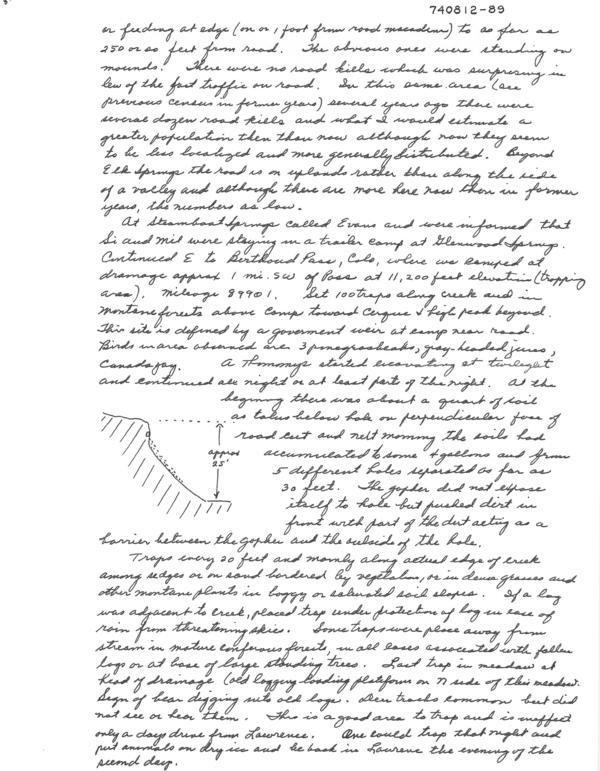 740812-89
or feeding at edge (on or 1 foot from road macadam) to as far as
250 or so feet from road. The obvious ones were standing on
mounds. There were no road kills which was surprising in
lew of the fast traffic on road. In this same area (see
previous census in former years) several years ago there were
several dozen road kills and what I would estimate a
greater population then than now although now they seem
to be less localized and more generally distributed. Beyond
Elk Springs the road is on uplands rather than along the side
of a valley and although there are more here now then in former
years, the numbers as low.
At Steamboat Springs called Evans and were informed that
Si and Mil were staying in a trailer camp at Glenwood Springs.
Continued E to Berthoud Pass, Colo, where we camped at
drainage approx 1 mi. SW of Pass at 11,200 feet elevation (trapping
area). Mileage 89901. Set 100 traps along creek and in
montane forests above camp toward Cerque & high peak beyond.
This site is defined by a goverment weir at camp near road.
Birds in area observed are 3 pinegrosbeaks, gray-headed juncos,
Canada jay. A Thomomys started excavating at twilight
and continued all night or at least part of the night. At the
beginning there was about a quart of soil
as talus below hole on perpendicular face of
road cut and next morning the soils had
accumulated to some 4 gallons and from
5 different holes separated as far as
30 feet. The gopher did not expose
itself to hole but pushed dirt in
front with part of the dirt acting as a
barrier between the gopher and the outside of the hole.
approx
25'
Traps every 20 feet and mainly along actual edge of creek
among sedges or on sand bordered by vegetation, or in dense grasses and
other montane plants in boggy or saturated soil slopes. If a log
was adjacent to creek, placed trap under protection of log in case of
rain from threatening skies. Some traps were place away from
stream in mature coniferous forests, in all cases associated with fallen
logs or at base of large standing trees. Last trap in meadow at
head of drainage (old logging loading platform on N side of this meadow.
Sign of bear digging into old logs. Deer tracks common but did
not see or hear them. This is a good area to trap and is in effect
only a days drive from Lawrence. One could trap that night and
put animals on dry ice and be back in Lawrence the evening of the
second day.